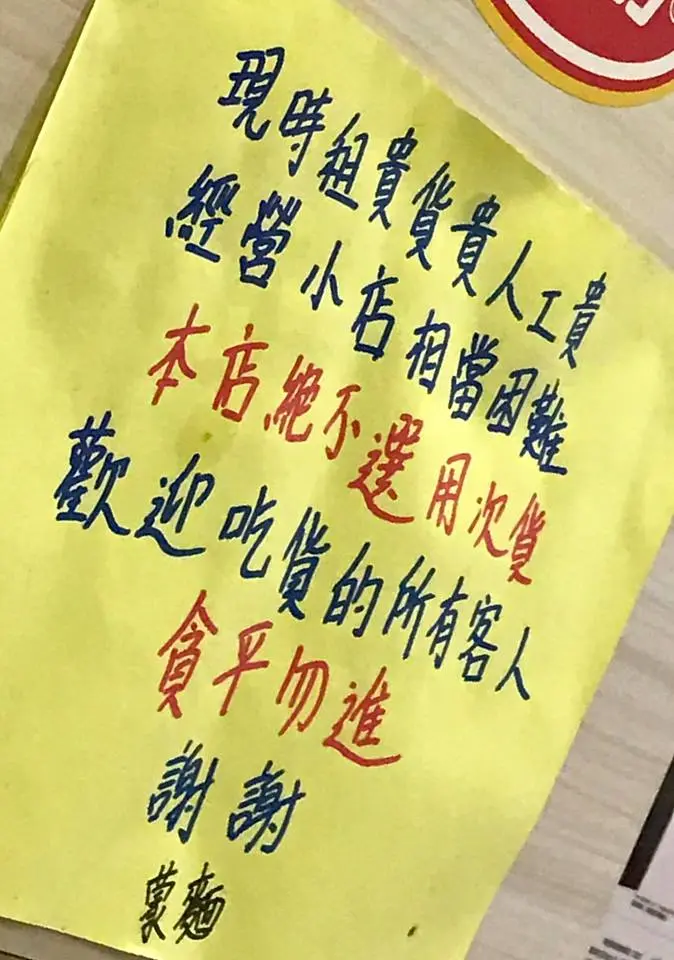 現時租貴貨貴人工貴
經營小店相當困難
本店絕不選用次貨
歡迎吃貨的所有客人
貪平勿進
謝謝
蒙麵